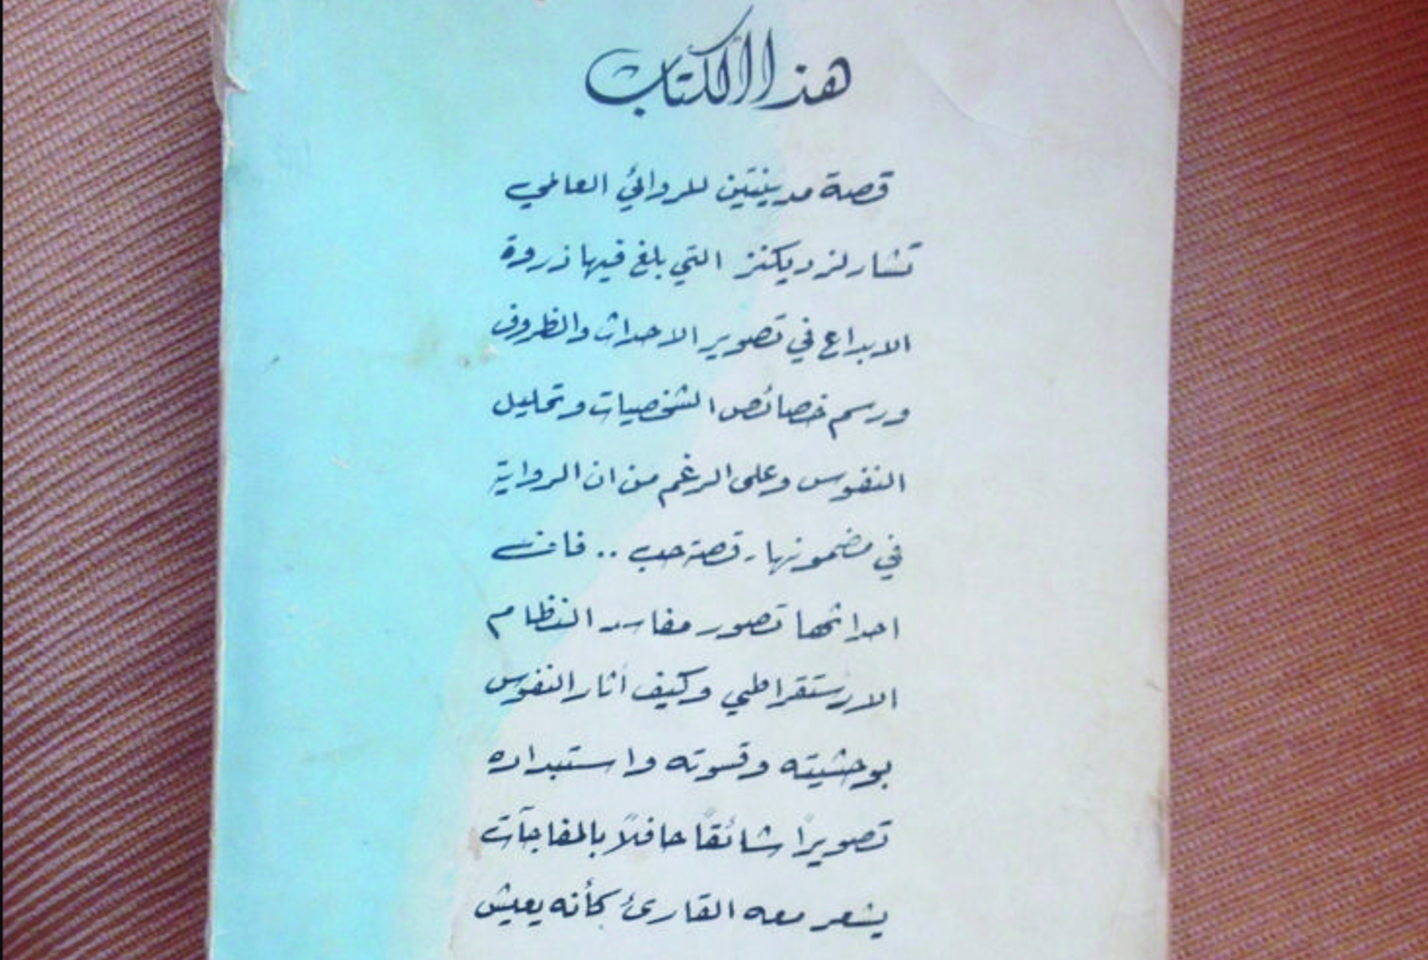 هذا الكتاب
قصة مدينتين للروائي العالمي
تشارلز ديكنز التي بلغ فيها ذروة
الابداع في تصوير الاحداث والظروف
ورسم خصائص الشخصيات وتحليل
النفوس وعلى الرغم من ان الرواية
في مضمونها قصة حب .. فان
احداثها تصور مفاسد النظام
الارستقراطي وكيف أثار النفوس
بوحشيته وقسوته واستبداده
تصويرًا شائقًا حافلًا بالمفاجآت
يشعر معه القارئ كأنه يعيش